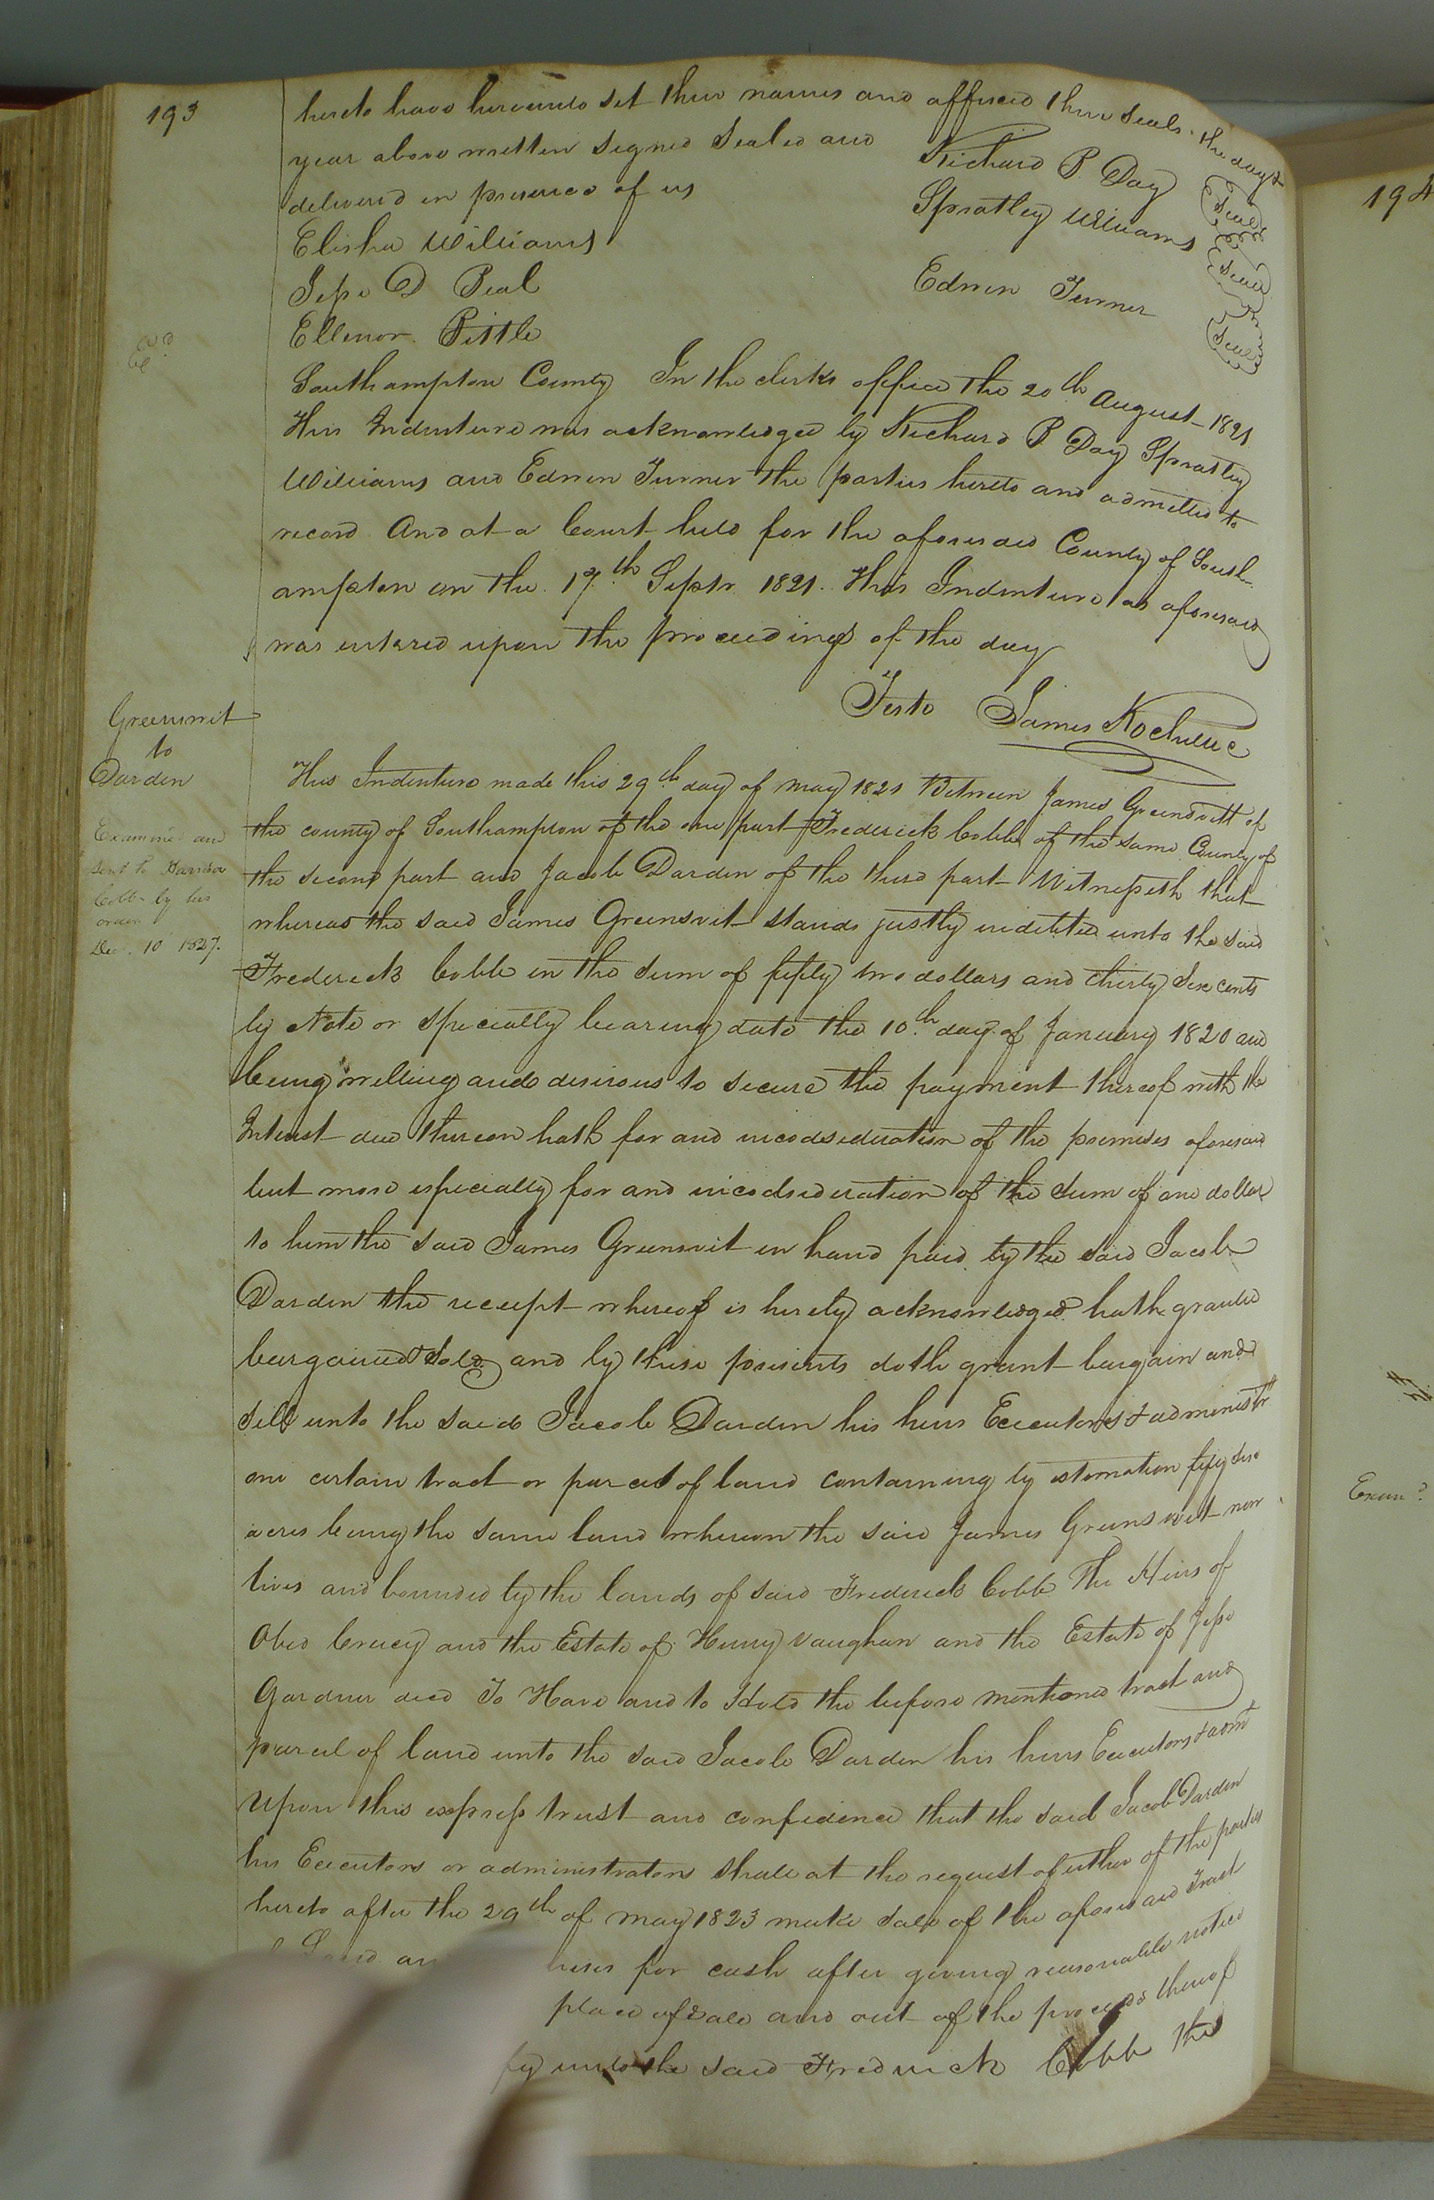 193
hereto have hereunto set their names and affixed their seals the day &
year above written Signed Sealed and
delivered in presence of us
Richard P Day Seal
Spratley Williams Seal
Elisha Williams
Jesse D Beal
Edwin Turner Seal
Ellenor Pittle
Southampton County In the clerks office the 20th August 1821
This Indenture was acknowledged by Richard P Day Spratley
Williams and Edwin Turner the parties hereto and admitted to
record And at a Court held for the aforesaid County of South-
ampton on the 17th Septr 1821. This Indenture as aforesaid
was entered upon the proceedings of the day
Teste James Rochelle
Greenswit
to
Darden
Examined and
sent to Harrison
Cobb by his
order
Dec. 10 1827.
This Indenture made this 29th day of may 1821 Between James Greenswitt of
the county of Southampton of the one part Frederick Cobb of the same County of
the second part and Jacob Darden of the third part Witnesseth that
whereas the said James Greenswit stands justly indebted unto the said
Frederick Cobb in the sum of fifty two dollars and thirty Six cents
by Note or specialty bearing date the 10th day of January 1820 and
being willing and desirous to secure the payment thereof with the
Interest due thereon hath for and incodsideration of the premises aforesaid
but more especially for and incodsideration of the Sum of one dollar
to him the said James Greenswit in hand paid by the said Jacob
Darden the receipt whereof is hereby acknowledged hath granted
bargained & Sold and by these presents doth grant bargain and
Sell unto the said Jacob Darden his heirs Executors & administr
one certain tract or parcel of land containing by estomation fifty six
acres being the same land whereon the said James Greenswit now
lives and bounded by the lands of said Frederick Cobb The Heirs of
Obed Crucy and the Estate of Henry Vaughan and the Estate of Jesse
Gardner decd To Have and to Hold the before mentioned tract and
parcel of land unto the said Jacob Darden his heirs Executors & admr
Upon this express trust and confidence that the said Jacob Darden
his Executors or administrators shall at the request of either of the parties
hereto after the 29th of may 1823 make sale of the aforesaid Tract
Land for cash after giving reasonable notice
place of sale and out of the proceeds thereof
unto the said Frederick Cobb the
194
Exam.d